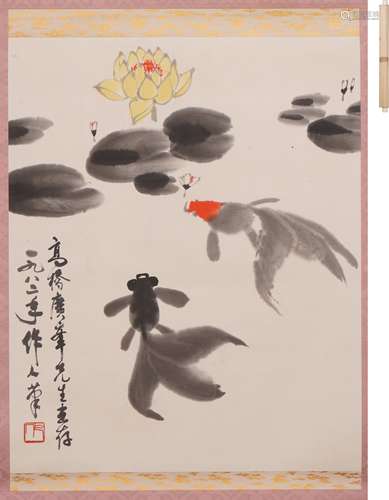 高橋廣峯先生惠存
一九八二年作